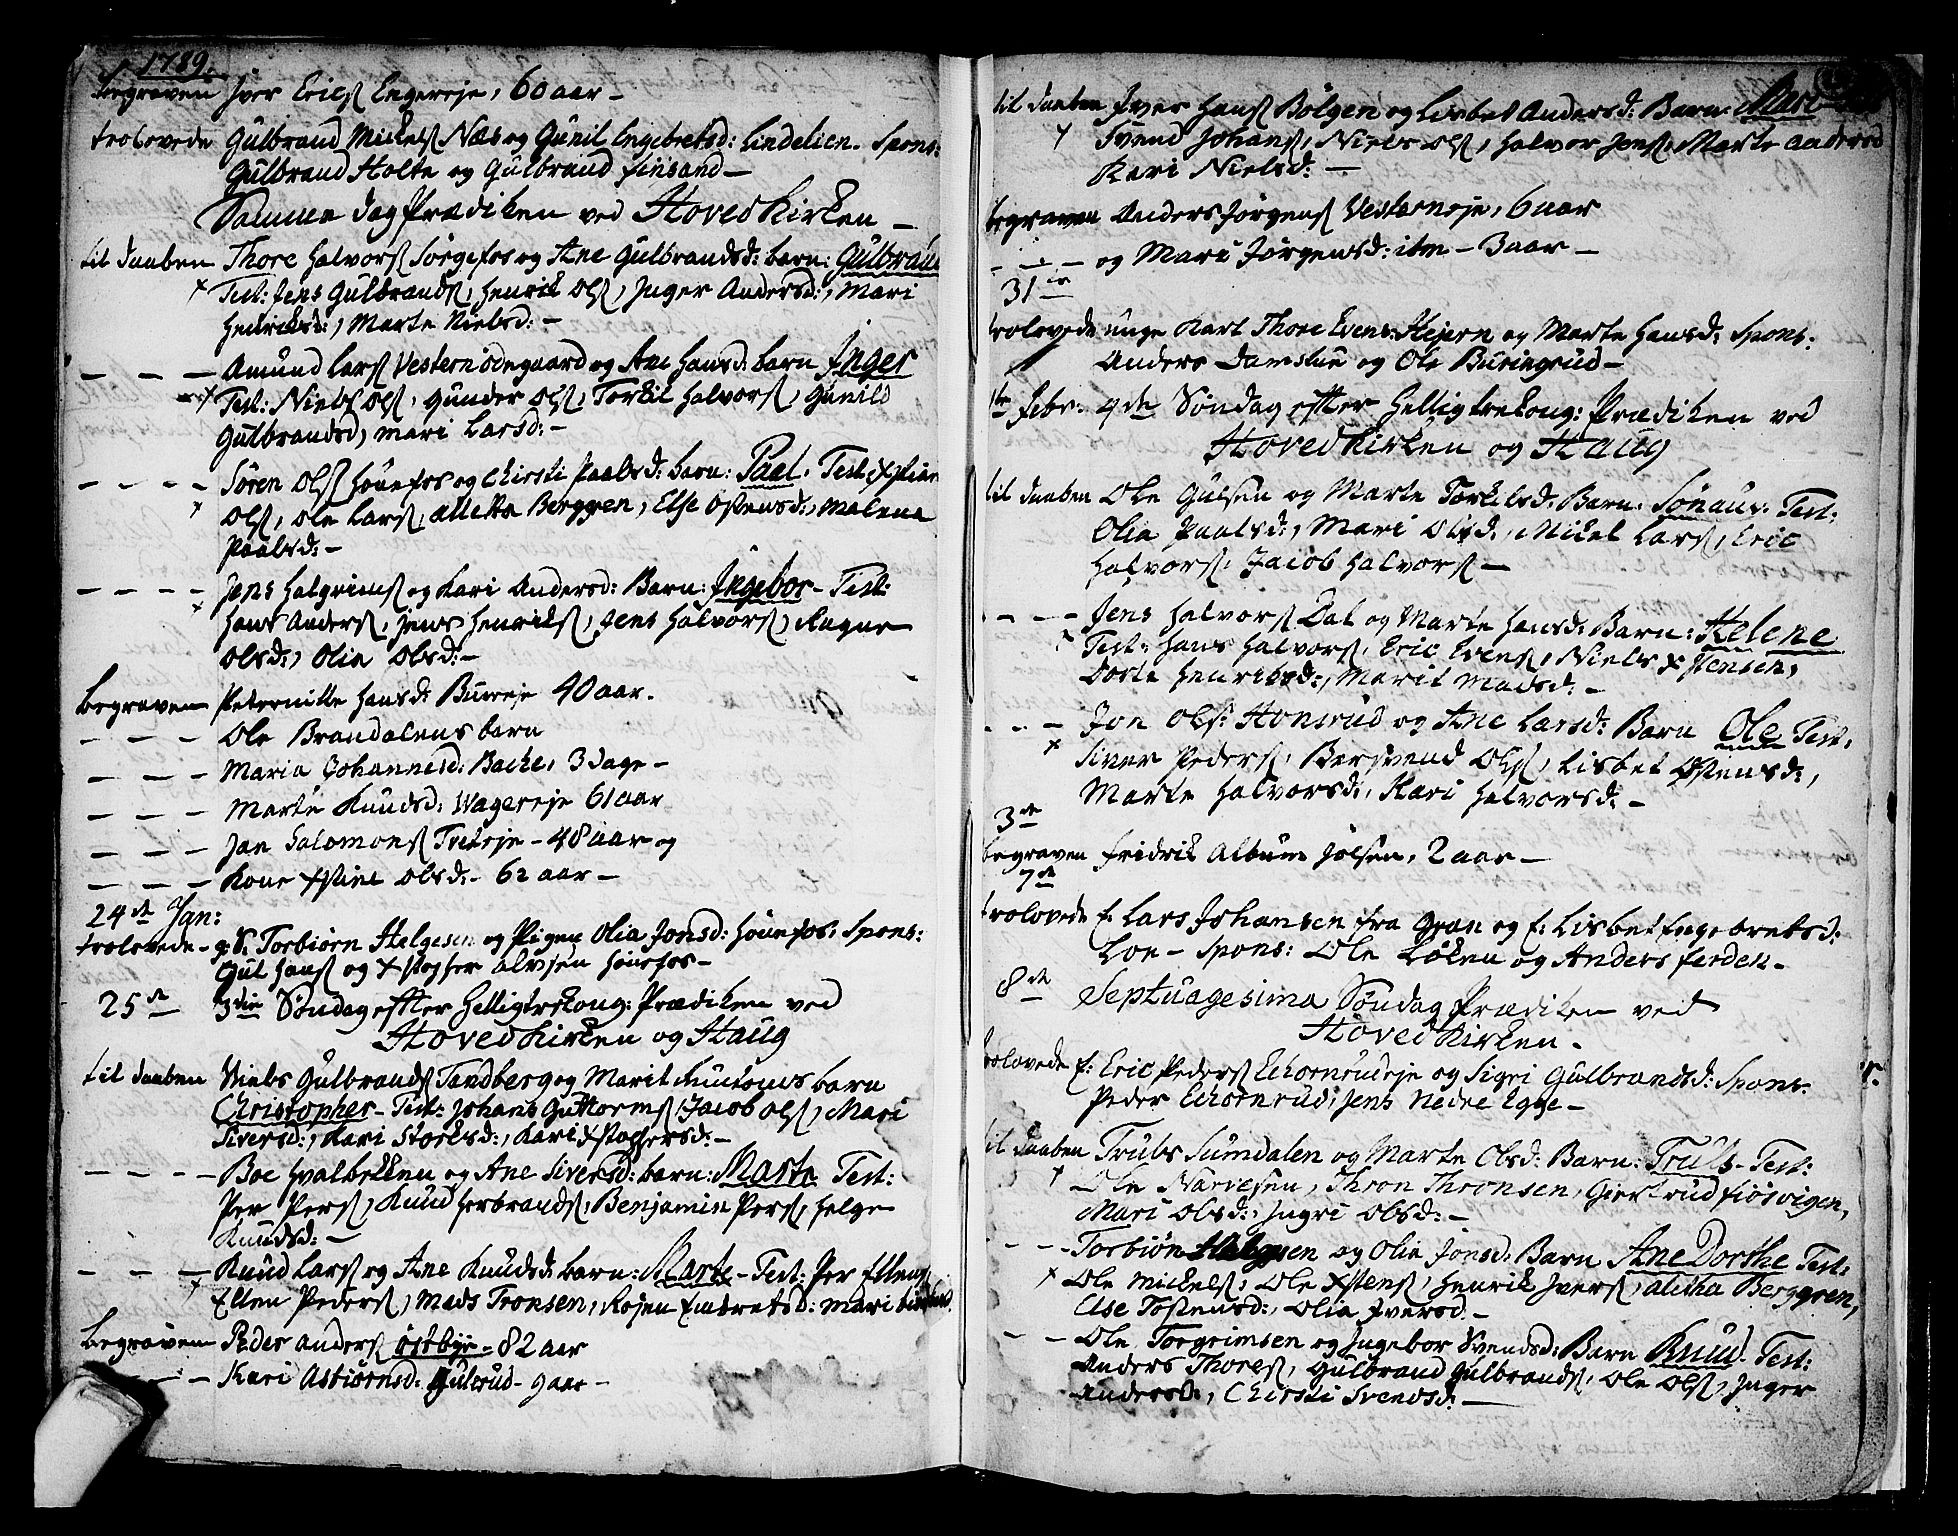 1789.
begraven Iver Erics Engereje, 60 aar –
trolovede Gulbrand Mickels Næs og Gunil Engebretsd: Lindelien. Spons:
Gulbrand Holte og Gulbrand finsand –
Samme dag Prædiken ved Hoved Kirken –
til daaben Thore Halvors Sørgefos og Ane Gulbrandsd: barn: Gulbrand
x Test: Jens Gulbrands, Henrik Ols, Inger Andersd:, Mari
Henriksd:, Marte Nielsd: –
– – – Amund Lars Vesternødegaard og Ane Hansd: barn Inger
x Test: Niels Ols, Gunder Ols, Torkil Halvors, Gunild
Gulbrandsd, Mari Larsd: –
– – – – Søren Ols Hønefos og Chirsti Paalsd: barn: Paal. Test: Xstian
x Ols, Ole Lars, Alletta Berggren, Else Ostensd:, Malena
Paalsd: –
– – – – Jens Halgrims og Kari Andersd: Barn: Ingebor – Test:
x Hans Anders, Jens Henriks, Jens Halvors, Ragne
Olsd:, Olia Olsd: –
begraven Peternille Hansd: Bureje 40 aar.
– – – Ole Brandalens barn
– – – Maria Johannesd: Bache, 3 dage –
– – – Marte Knudsd: Wagereje 61 aar
– – – Jan Salomons Tveteje – 48 aar og
– – – Kone Xstine Olsd. – 62 aar –
24de Jan:
trolovede – g. S. Torbiørn Helgesen og Pigen Olia Jonsd: Hønefos. Spons:
Gul Hans og Xstopher Alvsen Hønefos –
25de 3die Søndag efter Helligtrekong: Prædiken ved
Hoved Kirken og Haug
til daaben Niels Gulbrands Tandberg og Marit Guttorms barn
Christopher – Test: Johans Guttorms, Jacob Ols, Mari
Siversd:, Kari Storksd:, Kari Xstophersd: –
– – – – Boe Hvalbekken og Ane Siversd: barn: Marte Test:
Per Pers, Knud Herbrands, Benjamin Pers, Helge
Knudsd: –
– – – Knud Lars og Ane Knudsd: barn: Marte – Test: Per Ellens,
x Ellen Peders, Mads Tronsen, Rojen Embretsd: Mari
begraven Peder Anders østbye – 82 aar
– – Kari Astiørnsd: Gulerud – 9 aar –
til daaben Iver Hans Bølgen og Lisbet Andersd: Barn. Mari
x Svend Johans, Niels Ols, Halvor Jens, Marte Andersd
Kari Nielsd: –
begraven Anders Jørgens Vesterneje, 6 aar
– – – og Mari Jørgensd: ibm – 3 aar –
31te
trolovede unge Karl Thore Evens: Hejern og Marte Hansd: Spons:
Anders Damslue og Ole Buringrud –
1te Febr: 4de Søndag efter Helligtrekong: Prædiken ved
Hoved Kirken og Haug
til daaben Ole Gulsen og Marte Torkelsd: Barn. Sønaus. Test:
Olia Paalsd:, Mari Olsd:, Mikel Lars, Eric
Halvors, Jacob Halvors –
– – – Jens Halvors Dal og Marte Hansd: Barn: Helene
x Test: Hans Halvors, Eric Evens, Niels Xstensen,
Dorte Henriksd:, Marit Madsd: –
– – – Jon Ols: Honsrud og Ane Larsd: Barn Ole Test:
x Siver Peders, Bersvend Ols, Lisbet Ostensd:,
Marte Halvorsd:, Kari Halvorsd: –
3de
begraven Fridrik Album Jølsen, 2 aar –
7de
trolovede E. Lars Johansen fra Gran og E: Lisbet Engebretsd:
Loe – Spons: Ole Løken og Anders ferden –
8de Septuagesima Søndag Prædiken ved
Hoved Kirken.
trolovede E. Eric Peders Echornrudeje og Sigri Gulbrandsd: Spons.
Peder Echornrud, Jens Nedre Egge –
til daaben Truls Sundalen og Marte Olsd: Barn: Truls – Test:
x Ole Narvesen, Thron Thronsen, Giertrud fiøsvigen,
Mari Olsd:, Ingri Olsd: –
– – – Torbiøn Helgesen og Olia Jonsd: Barn Ane Dorthe Test:
x Ole Mickels, Ole Xstens, Henrik Ivers, Aletha Berggren,
Else Tostensd:, Olia Iversd. –
– – – Ole Torgrimsen og Ingebor Svendsd: Barn Knud – Test:
Anders Thores, Gulbrand Gulbrands, Ole Ols, Inger
Andersd:, Chirsti Svendsd: –